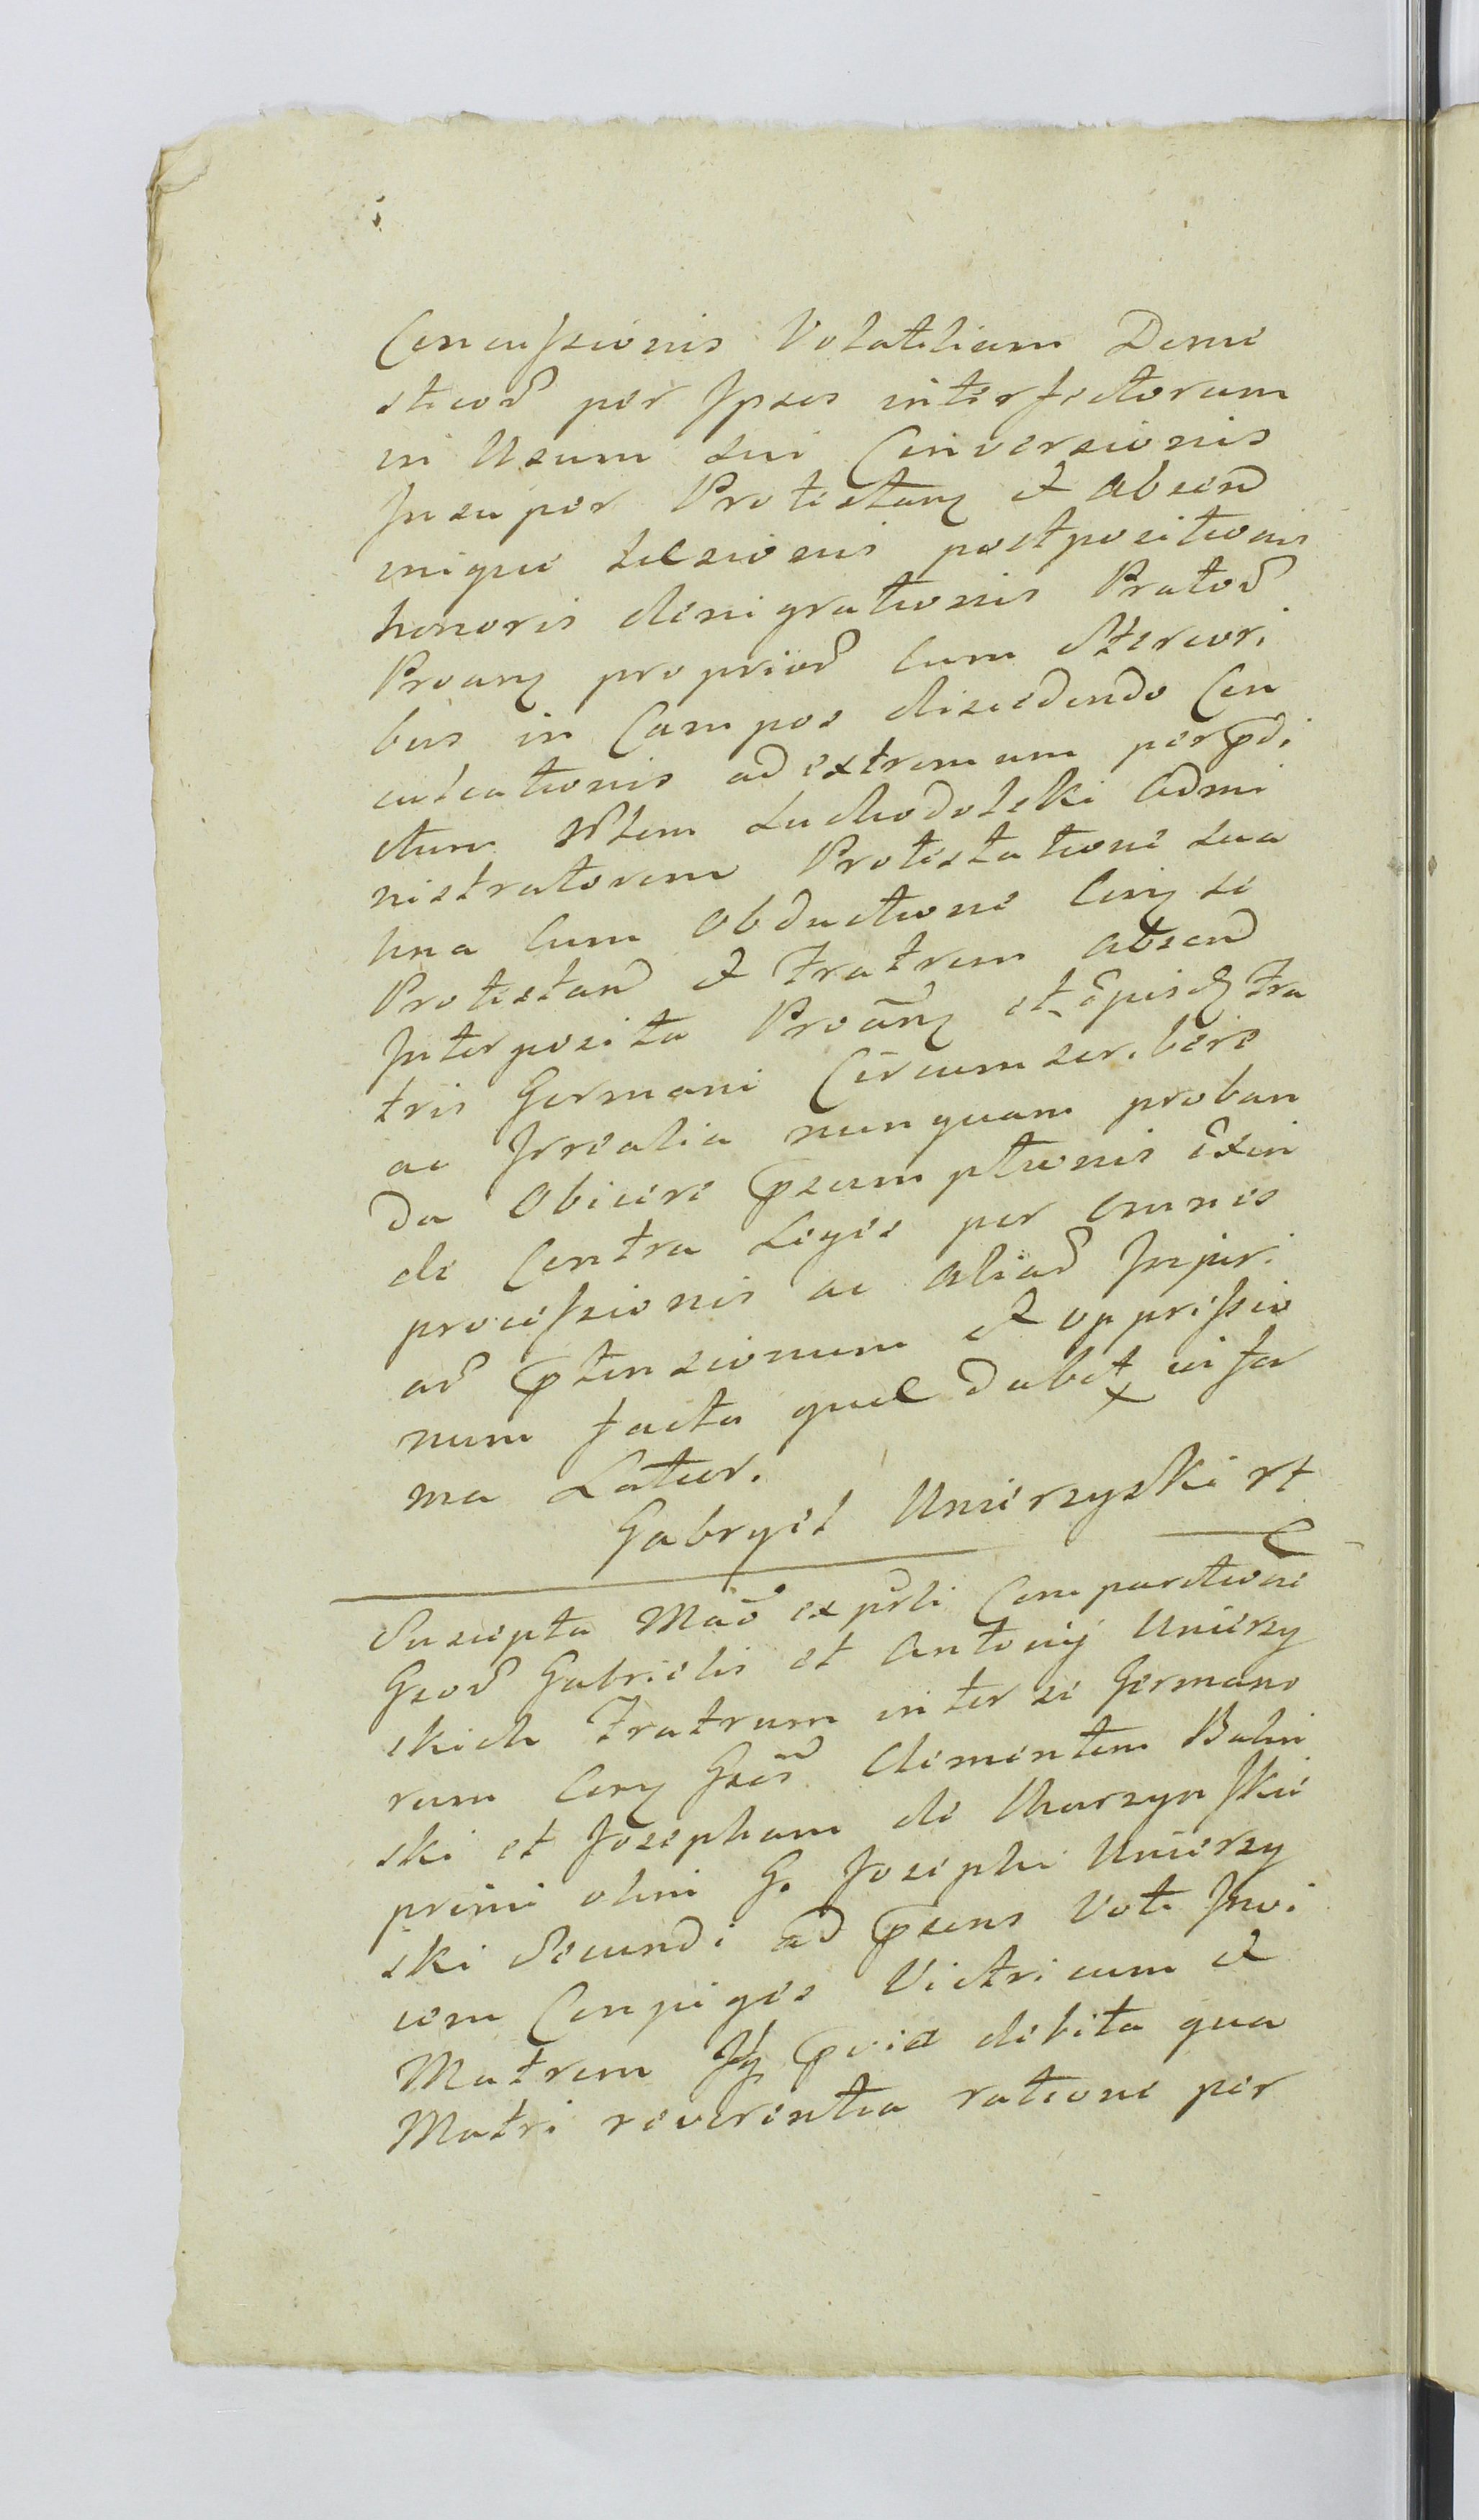 Concussionis Volatilium Dome
sticor̃ per Ipsos interfectorum
in Usum sui Conversionis
Insuper Protestanͥ et absen͂
inique Læsionis postpositionis
honoris denigrationis Prator̃
Proanͥ proprior̃ cum Stercori
bus in Campos discedendo Con
culcationis ad extremum per p̄di
ctum Nblem Suchodolski Admi
nistratorem Protestatione sua
una cum Obductione Con̄ se
Protestan͂ et Fratrem absen͂
Interposita Proãnͥ et ẽpis͂ Fra
tris Germani Circumscribere
ac Irrealia nunquam proban
da Obicere p̄sumptionis exin
de Contra Leges per Omnes
processionis ac aliar̃ Injuri
ar̃ p̄tensionum et oppressio
num facta quæ dabit in for
ma Latior.
Gabryel Unierzyski rt
Suscepta Mãõ ex p̃rli Comparitione
Gsor̃ Gabrielis et Antonij Unierzy
skich Fratrum inter se Germano
rum Con̄ Gsõs Clementem Balin
ski et Josepham de Charzynskie
primi olim G. Josephi Unierzy
ski Secundi ad p̄sens Voti Invi
cem Conjuges Victricum et
Matrem p̄via debita qua
Matri reverentia ratione per